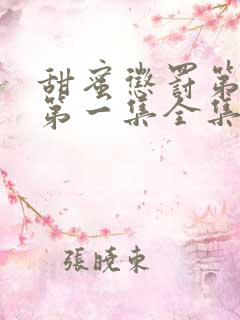 甜蜜懲罰第
第一集全集
張曉東